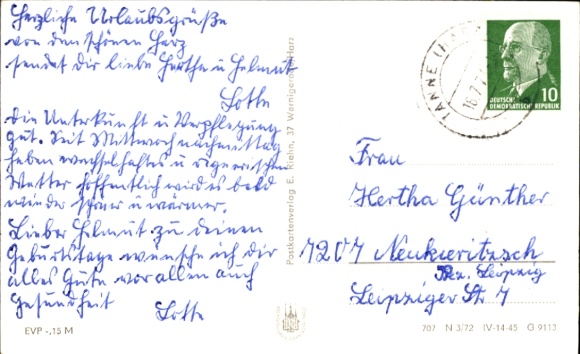 Herzliche Urlaubsgrüße
von den schönen Harz
sendet dir liebe Hertha u Helmut
Lotte
Die Unterkunft u Verpflegung
gut. Seit Mittwoch nachmittag
haben wechselhaftes u
Wetter hoffentlich wird es bald
wieder u wärmer.
Lieber Helmut zu deinen
Geburtstage wünsche ich dir
alles Gute vor allen auch
Gesundheit Lotte
EVP -,15 M
Postkartenverlag E. Riehn, 37 Wernigerode Harz
TANNE
DEUTSCHE
DEMOKRATISCHE REPUBLIK
10
Frau
Hertha Günther
7207 Neukieritzsch
Bez. Leipzig
Leipziger Str 7
707 N 3/72 IV-14-45 G 9113